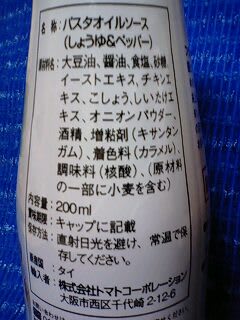 名 称：パスタオイルソース
（しょうゆ&ペッパー）
原材料名：大豆油、醤油、食塩、砂糖、
イーストエキス、チキンエ
キス、こしょう、しいたけエ
キス、オニオンパウダー、
酒精、増粘剤（キサンタン
ガム）、着色料（カラメル）、
調味料（核酸）、（原材料
の一部に小麦を含む）
内容量：200ml
賞味期限：キャップに記載
保存方法：直射日光を避け、常温で保
存してください。
原産国：タイ
輸入者：株式会社トマトコーポレーション
大阪市西区千代崎2-12-6